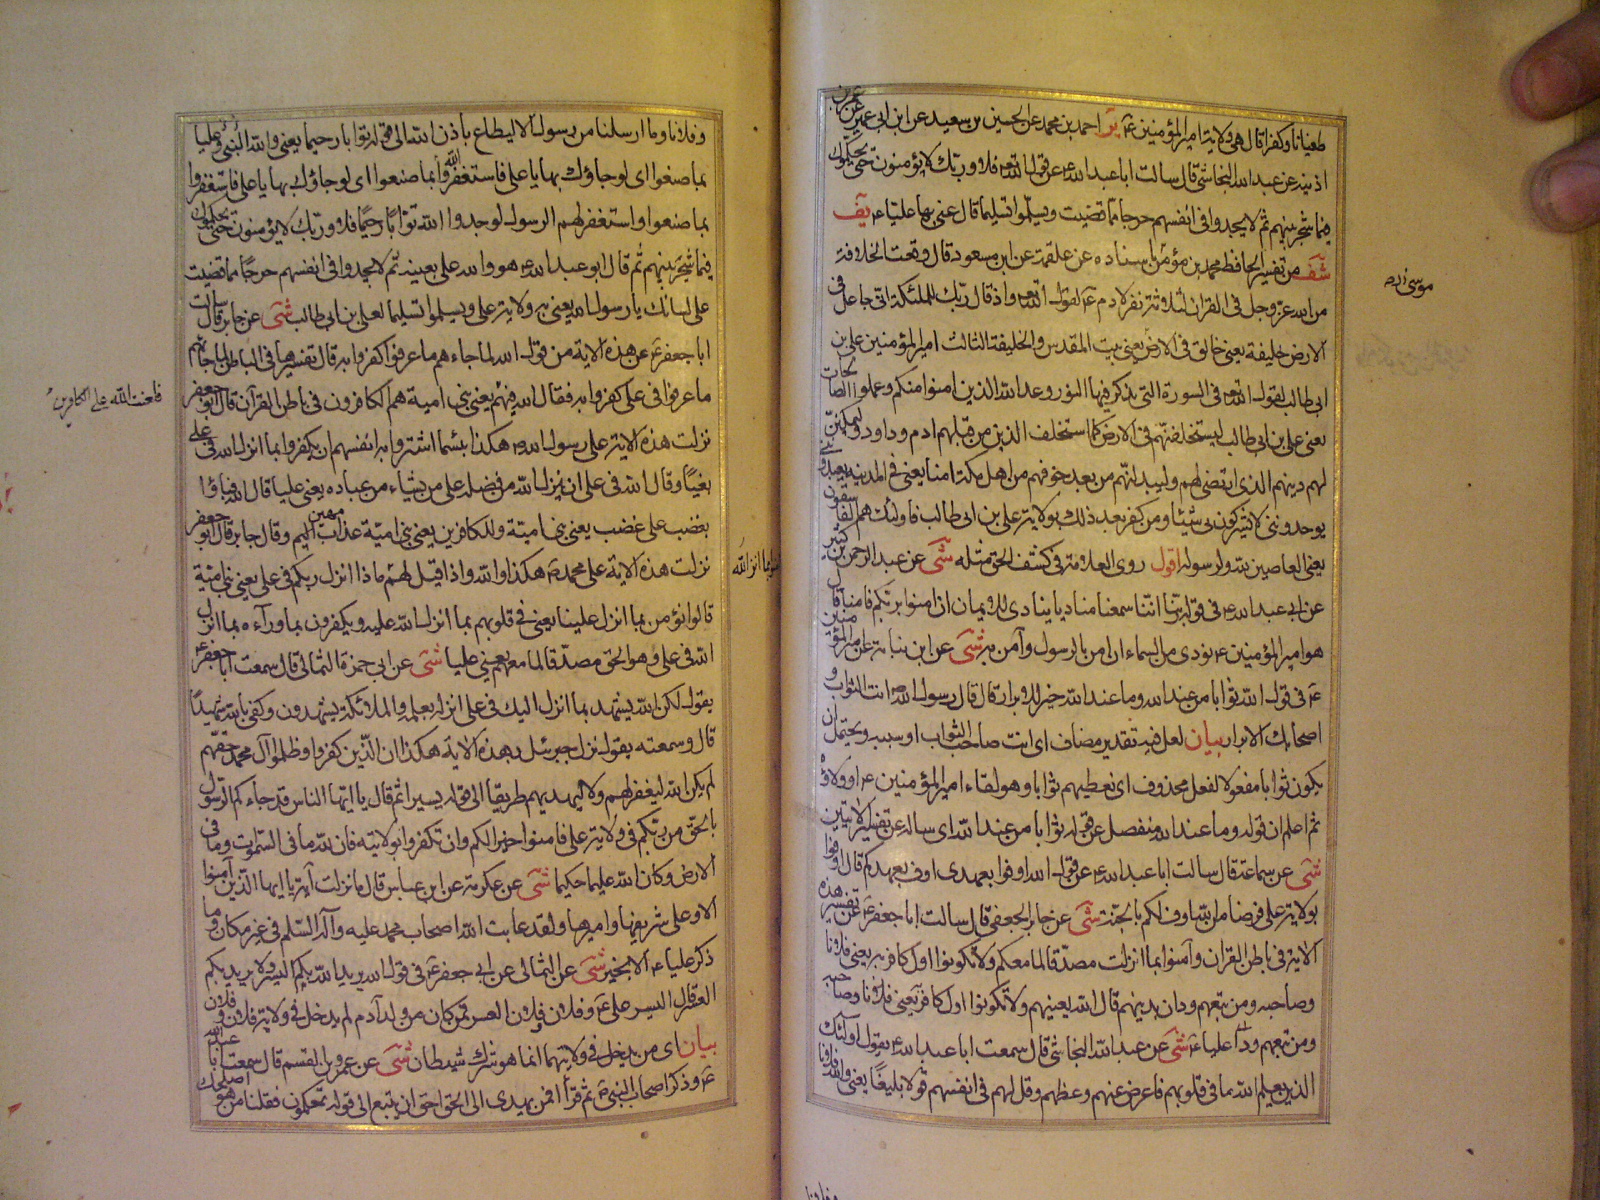 طغيانا وكفرا قال هي ولاية امير المؤمنين ع ير احمد بن محمد عن الحسين بن سعيد عن ابن ابي عمير عن عمر بن
اذينة عن عبد الله النجاشي قال سالت ابا عبد الله ع عن قول الله تعه فلا وربك لا يؤمنون حتى يحكموك
فيما شجر بينهم ثم لا يجدوا في انفسهم حرجا مما قضيت ويسلموا تسليما قال عنى بها عليا ع يف
شف من تفسير الحافظ محمد بن مؤمن باسناده عن علقمة عن ابن مسعود قال وقعت الخلافة
من الله عز وجل في القران لثلاثة نفر لادم ع لقول الله تعه واذ قال ربك للملئكة اني جاعل في
الارض خليفة يعني خالق في الارض يعني بيت المقدس والخليفة الثالث امير المؤمنين علي بن
ابي طالب لقول الله تعه في السورة التي يذكر فيها النور وعد الله الذين امنوا منكم وعملوا الصالحات
يعني علي بن ابي طالب ليستخلفنهم في الارض كما استخلف الذين من قبلهم ادم وداود وليمكنن
لهم دينهم الذي ارتضى لهم وليبدلنهم من بعد خوفهم من اهل مكة امنا يعني في المدينة يعبدونني
يوحدونني لا يشركون بي شيئا ومن كفر بعد ذلك بولاية علي بن ابي طالب فاولئك هم الفاسقون
يعني العاصين لله ولرسوله اقول روى العلامة في كشف الحق مثله شى عن عبد الرحمن بن كثير
عن ابي عبد الله ع في قوله ربنا اننا سمعنا مناديا ينادي للايمان ان امنوا بربكم فامنا قال
هو امير المؤمنين ع نودي من السماء ان امن بالرسول وآمن به شى عن ابن نباتة عن امير المؤمنين
ع في قول الله ثوابا من عند الله وما عند الله خير للابرار قال قال رسول الله ص انت الثواب و
اصحابك الابرار بيان لعل فيه تقدير مضاف اي انت صاحب الثواب او سببه ويحتمل ان
يكون ثوابا مفعولا لفعل محذوف اي نعطيهم ثوابا وهو لقاء امير المؤمنين ع او ولاؤه
ثم اعلم ان قوله وما عند الله منفصل عن قوله ثوابا من عند الله اي ساله عن تفسير الايتين
شى عن سماعة قال سالت ابا عبد الله ع عن قول الله اوفوا بعهدي اوف بعهدكم قال اوفوا
بولاية علي فرضا من الله اوف لكم بالجنة شى عن جابر الجعفي قال سالت ابا جعفر ع عن تفسير هذه
الاية في باطن القران وآمنوا بما انزلت مصدقا لما معكم ولا تكونوا اول كافر به يعني فلانا
وصاحبه ومن تبعهم ودان بدينهم قال الله يعنيهم ولا تكونوا اول كافر به يعني فلانا وصاحبه
ومن تبعهم ودا عليا ع شى عن عبد الله النجاشي قال سمعت ابا عبد الله ع يقول اولئك
الذين يعلم الله ما في قلوبهم فاعرض عنهم وعظهم وقل لهم في انفسهم قولا بليغا يعني والله فلانا
وفلانا
موسى ره
وفلانا وما ارسلنا من رسول الا ليطاع باذن الله الى قوله توابا رحيما يعني والله النبي وعليا
بما صنعوا اي لو جاؤك بها يا علي فاستغفروا الله مما صنعوا اي لو جاؤك بها يا علي فاستغفروا
بما صنعوا واستغفر لهم الرسول لوجدوا الله توابا رحيما فلا وربك لا يؤمنون حتى يحكموك
فيما شجر بينهم ثم قال ابو عبد الله ع هو والله علي بعينه ثم لا يجدوا في انفسهم حرجا مما قضيت
على لسانك يا رسول الله يعني به ولاية علي ويسلموا تسليما لعلي بن ابي طالب شى عن جابر قال سالت
ابا جعفر ع عن هذه الاية من قول الله لما جاءهم ما عرفوا كفروا به قال تفسيرها في الباطن لما جاءهم
ما عرفوا في علي كفروا به فقال الله فيهم يعني بني امية هم الكافرون في باطن القرآن قال ابو جعفر
نزلت هذه الاية على رسول الله ص هكذا بئسما اشتروا به انفسهم ان يكفروا بما انزل الله في علي
بغيا وقال الله في علي ان ينزل الله من فضله على من يشاء من عباده يعني عليا قال الله فباؤا
بغضب على غضب يعني بني امية وللكافرين يعني بني امية عذاب مهين اليم وقال جابر قال ابو جعفر
نزلت هذه الاية على محمد ص هكذا والله واذا قيل لهم ماذا انزل ربكم في علي يعني بني امية
قالوا نؤمن بما انزل علينا يعني في قلوبهم بما انزل الله عليه ويكفرون بما وراءه بما انزل
الله في علي وهو الحق مصدقا لما معهم يعني عليا شى عن ابي حمزة الثمالي قال سمعت ابا جعفر ع
يقول لكن الله يشهد بما انزل اليك في علي انزله بعلمه والملائكة يشهدون وكفى بالله شهيدا
قال وسمعته يقول نزل جبرئيل بهذه الاية هكذا ان الذين كفروا وظلموا آل محمد حقهم
لم يكن الله ليغفر لهم ولا ليهديهم طريقا الى قوله يسيرا ثم قال يا ايها الناس قد جاءكم الرسول
بالحق من ربكم في ولاية علي فامنوا خيرا لكم وان تكفروا بولايته فان لله ما في السموات وما في
الارض وكان الله عليما حكيما شى عن عكرمة عن ابن عباس قال ما نزلت آية يا ايها الذين آمنوا
الا وعلي شريفها واميرها ولقد عاتب الله اصحاب محمد عليه وآله السلم في غير مكان وما
ذكر عليا ع الا بخير شى عن الثمالي عن ابي جعفر ع في قول الله يريد الله بكم اليسر ولا يريد بكم
العسر قال اليسر علي ع وفلان وفلان العسر فمن كان من ولد آدم لم يدخل في ولاية فلان وفلان
بيان اي من يدخل في ولايتهما انما هو شرك شيطان شى عن عمرو بن القسم قال سمعت ابا عبد الله
ع وذكر اصحاب النبي ص ثم قرأ افمن يهدي الى الحق احق ان يتبع الى قوله تحكمون فقلنا من هو اصلحك
فلعنة الله على الكافرين
بما انزل الله